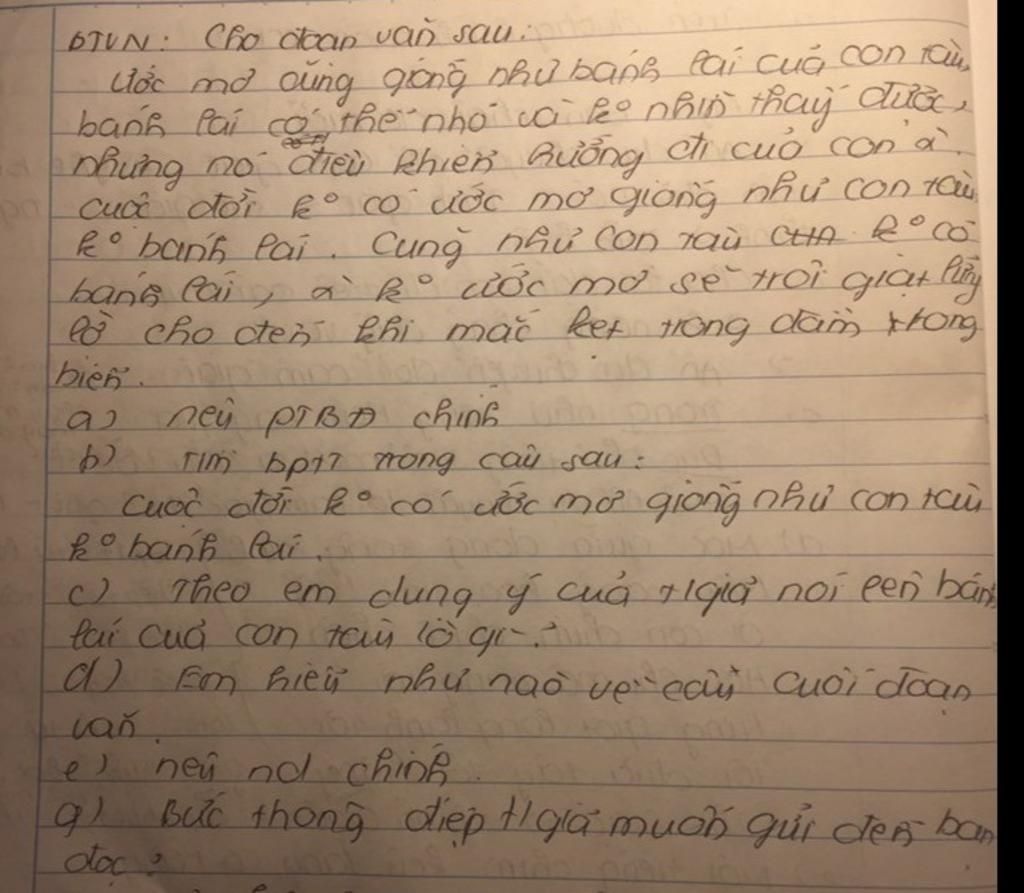 BTVN: Cho đoạn văn sau:
Ước mơ cũng giống như bánh lái của con tàu,
bánh lái có thể nhỏ và k° nhìn thấy được,
nhưng nó điều khiển hướng đi của con ng`.
cuộc đời k° có ước mơ giống như con tàu
k° bánh lái. Cũng như con tàu k° có
bánh lái, ng` k° ước mơ sẽ trôi giạt lững
lờ cho đến khi mắc kẹt trong đám rong
biển.
a) nêu PTBĐ chính
b) Tìm bptt trong câu sau:
Cuộc đời k° có ước mơ giống như con tàu
k° bánh lái.
c) Theo em dụng ý của t/giả nói đến bánh
lái của con tàu là gì?
d) Em hiểu như nào về câu cuối đoạn
văn.
e) nêu nd chính.
g) Bức thông điệp t/giả muốn gửi đến bạn
đọc?